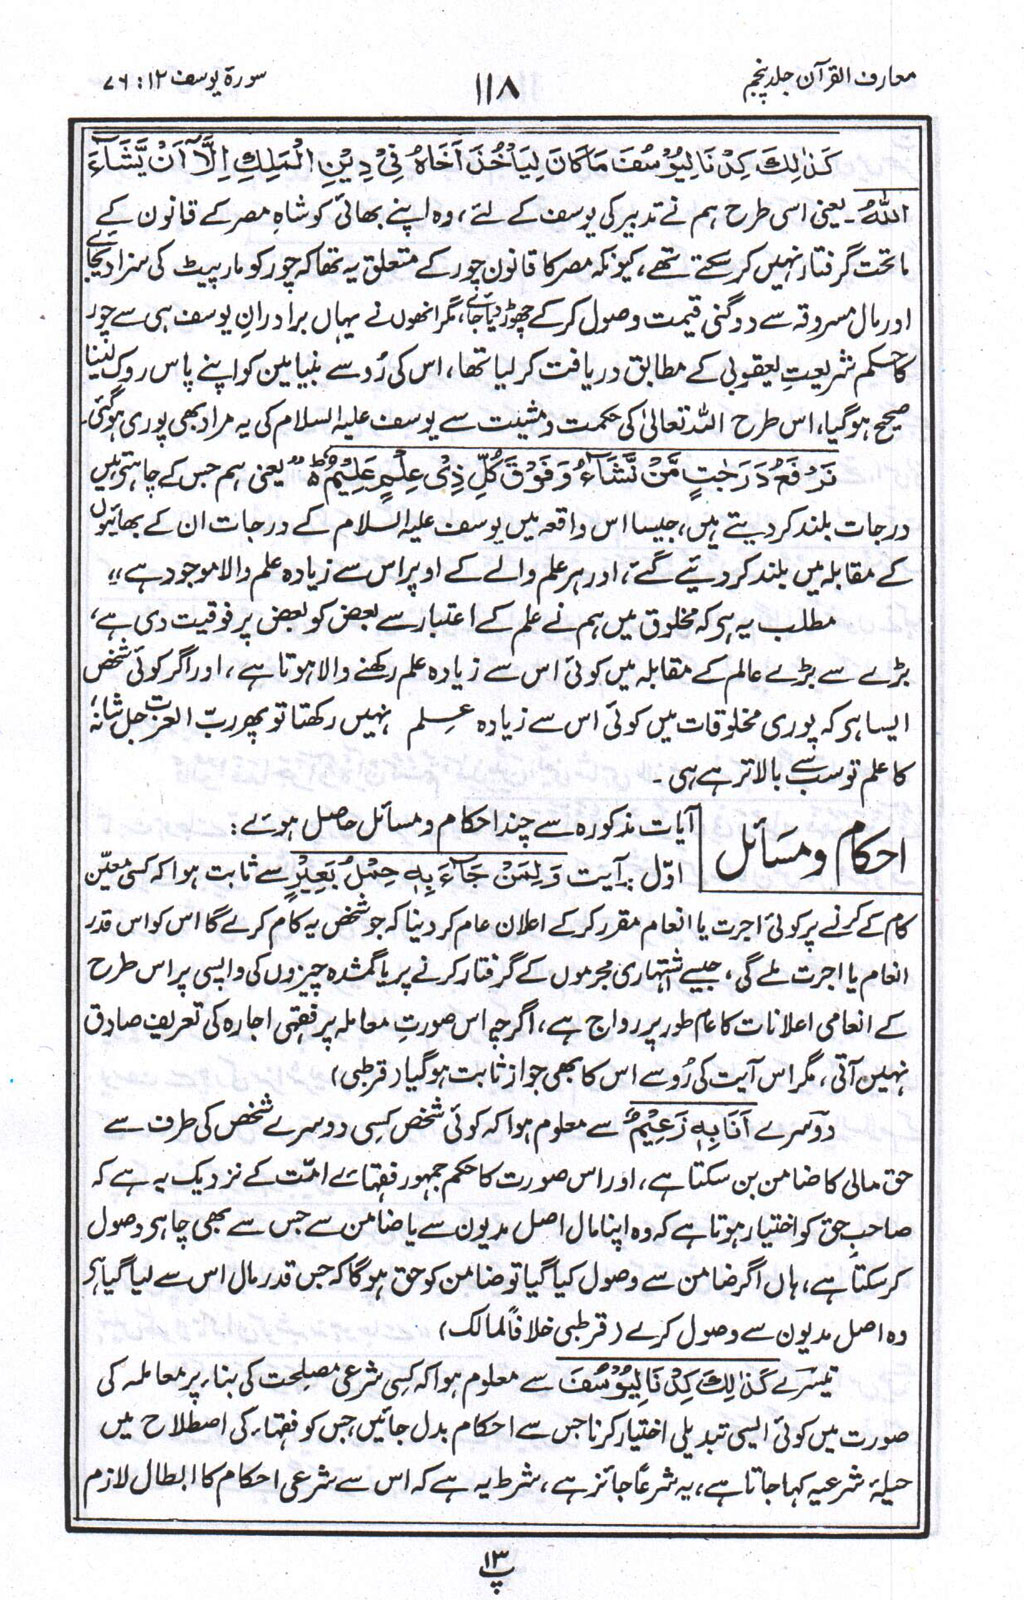 معارف القرآن جلد پنجم
۱۱۸
سورۃ یوسف ۱۲ : ۷۶
كَذٰلِكَ كِدْنَا لِيُوْسُفَ مَا كَانَ لِيَاْخُذَ اَخَاهُ فِيْ دِيْنِ الْمَلِكِ اِلَّآ اَنْ يَّشَآءَ
اللّٰهُ۔ یعنی اسی طرح ہم نے تدبیر کی یوسف کے لئے، وہ اپنے بھائی کو شاہِ مصر کے قانون کے
ماتحت گرفتار نہیں کر سکتے تھے، کیونکہ مصر کا قانون چور کے متعلق یہ تھا کہ چور کو مار پیٹ کی سزا دیجائے
اور مال مسروقہ سے دوگنی قیمت وصول کر کے چھوڑ دیا جائے، مگر انھوں نے یہاں برادرانِ یوسف ہی سے چور
کا حکم شریعتِ یعقوبی کے مطابق دریافت کر لیا تھا، اس کی رُو سے بنیامین کو اپنے پاس روک لینا
صحیح ہو گیا، اس طرح اللہ تعالیٰ کی حکمت و مشیت سے یوسف علیہ السلام کی یہ مراد بھی پوری ہو گئی۔
نَرْفَعُ دَرَجٰتٍ مَّنْ نَّشَآءُ وَفَوْقَ كُلِّ ذِيْ عِلْمٍ عَلِيْمٌ ”یعنی ہم جس کے چاہتے ہیں
درجات بلند کر دیتے ہیں، جیسا اس واقعہ میں یوسف علیہ السلام کے درجات ان کے بھائیوں
کے مقابلہ میں بلند کر دیئے گئے، اور ہر علم والے کے اوپر اس سے زیادہ علم والا موجود ہے“
مطلب یہ ہی کہ مخلوق میں ہم نے علم کے اعتبار سے بعض کو بعض پر فوقیت دی ہے،
بڑے سے بڑے عالم کے مقابلہ میں کوئی اس سے زیادہ علم رکھنے والا ہوتا ہے، اور اگر کوئی شخص
ایسا ہی کہ پوری مخلوقات میں کوئی اس سے زیادہ علم نہیں رکھتا تو پھر ربّ العزت جل شانہٗ
کا علم تو سب سے بالاتر ہے ہی۔
احکام و مسائل
آیات مذکورہ سے چند احکام و مسائل حاصل ہوئے:
اوّل: آیت وَلِمَنْ جَآءَ بِهٖ حِمْلُ بَعِيْرٍ سے ثابت ہوا کہ کسی معیّن
کام کے کرنے پر کوئی اجرت یا انعام مقرر کر کے اعلان عام کر دینا کہ جو شخص یہ کام کرے گا اس کو اس قدر
انعام یا اجرت ملے گی، جیسے اشتہاری مجرموں کے گرفتار کرنے پر یا گمشدہ چیزوں کی واپسی پر اس طرح
کے انعامی اعلانات کا عام طور پر رواج ہے، اگرچہ اس صورتِ معاملہ پر فقہی اجارہ کی تعریف صادق
نہیں آتی، مگر اس آیت کی رُو سے اس کا بھی جواز ثابت ہو گیا (قرطبی)
دوسرے اَنَا بِهٖ زَعِيْمٌ سے معلوم ہوا کہ کوئی شخص کسی دوسرے شخص کی طرف سے
حق مالی کا ضامن بن سکتا ہے، اور اس صورت کا حکم جمہور فقہائے امّت کے نزدیک یہ ہے کہ
صاحبِ حق کو اختیار ہوتا ہے کہ وہ اپنا مال اصل مدیون سے یا ضامن سے جس سے بھی چاہی وصول
کر سکتا ہے، ہاں اگر ضامن سے وصول کیا گیا تو ضامن کو حق ہو گا کہ جس قدر مال اس سے لیا گیا ہی
وہ اصل مدیون سے وصول کرے (قرطبی خلافاً لمالک)
تیسرے كَذٰلِكَ كِدْنَا لِيُوْسُفَ سے معلوم ہوا کہ کسی شرعی مصلحت کی بناء پر معاملہ کی
صورت میں کوئی ایسی تبدیلی اختیار کرنا جس سے احکام بدل جائیں، جس کو فقہاء کی اصطلاح میں
حیلۂ شرعیہ کہا جاتا ہے، یہ شرعاً جائز ہے، شرط یہ ہے کہ اس سے شرعی احکام کا ابطال لازم
پ ۱۳